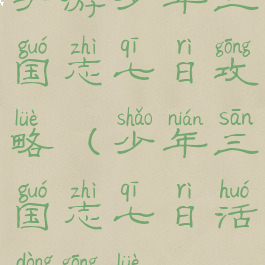 游少年三
guó zhì qī rì gōng
国志七日攻
lüè shǎo nián sān
略（少年三
guó zhì qī rì huó
国志七日活
dòng gōng lüè